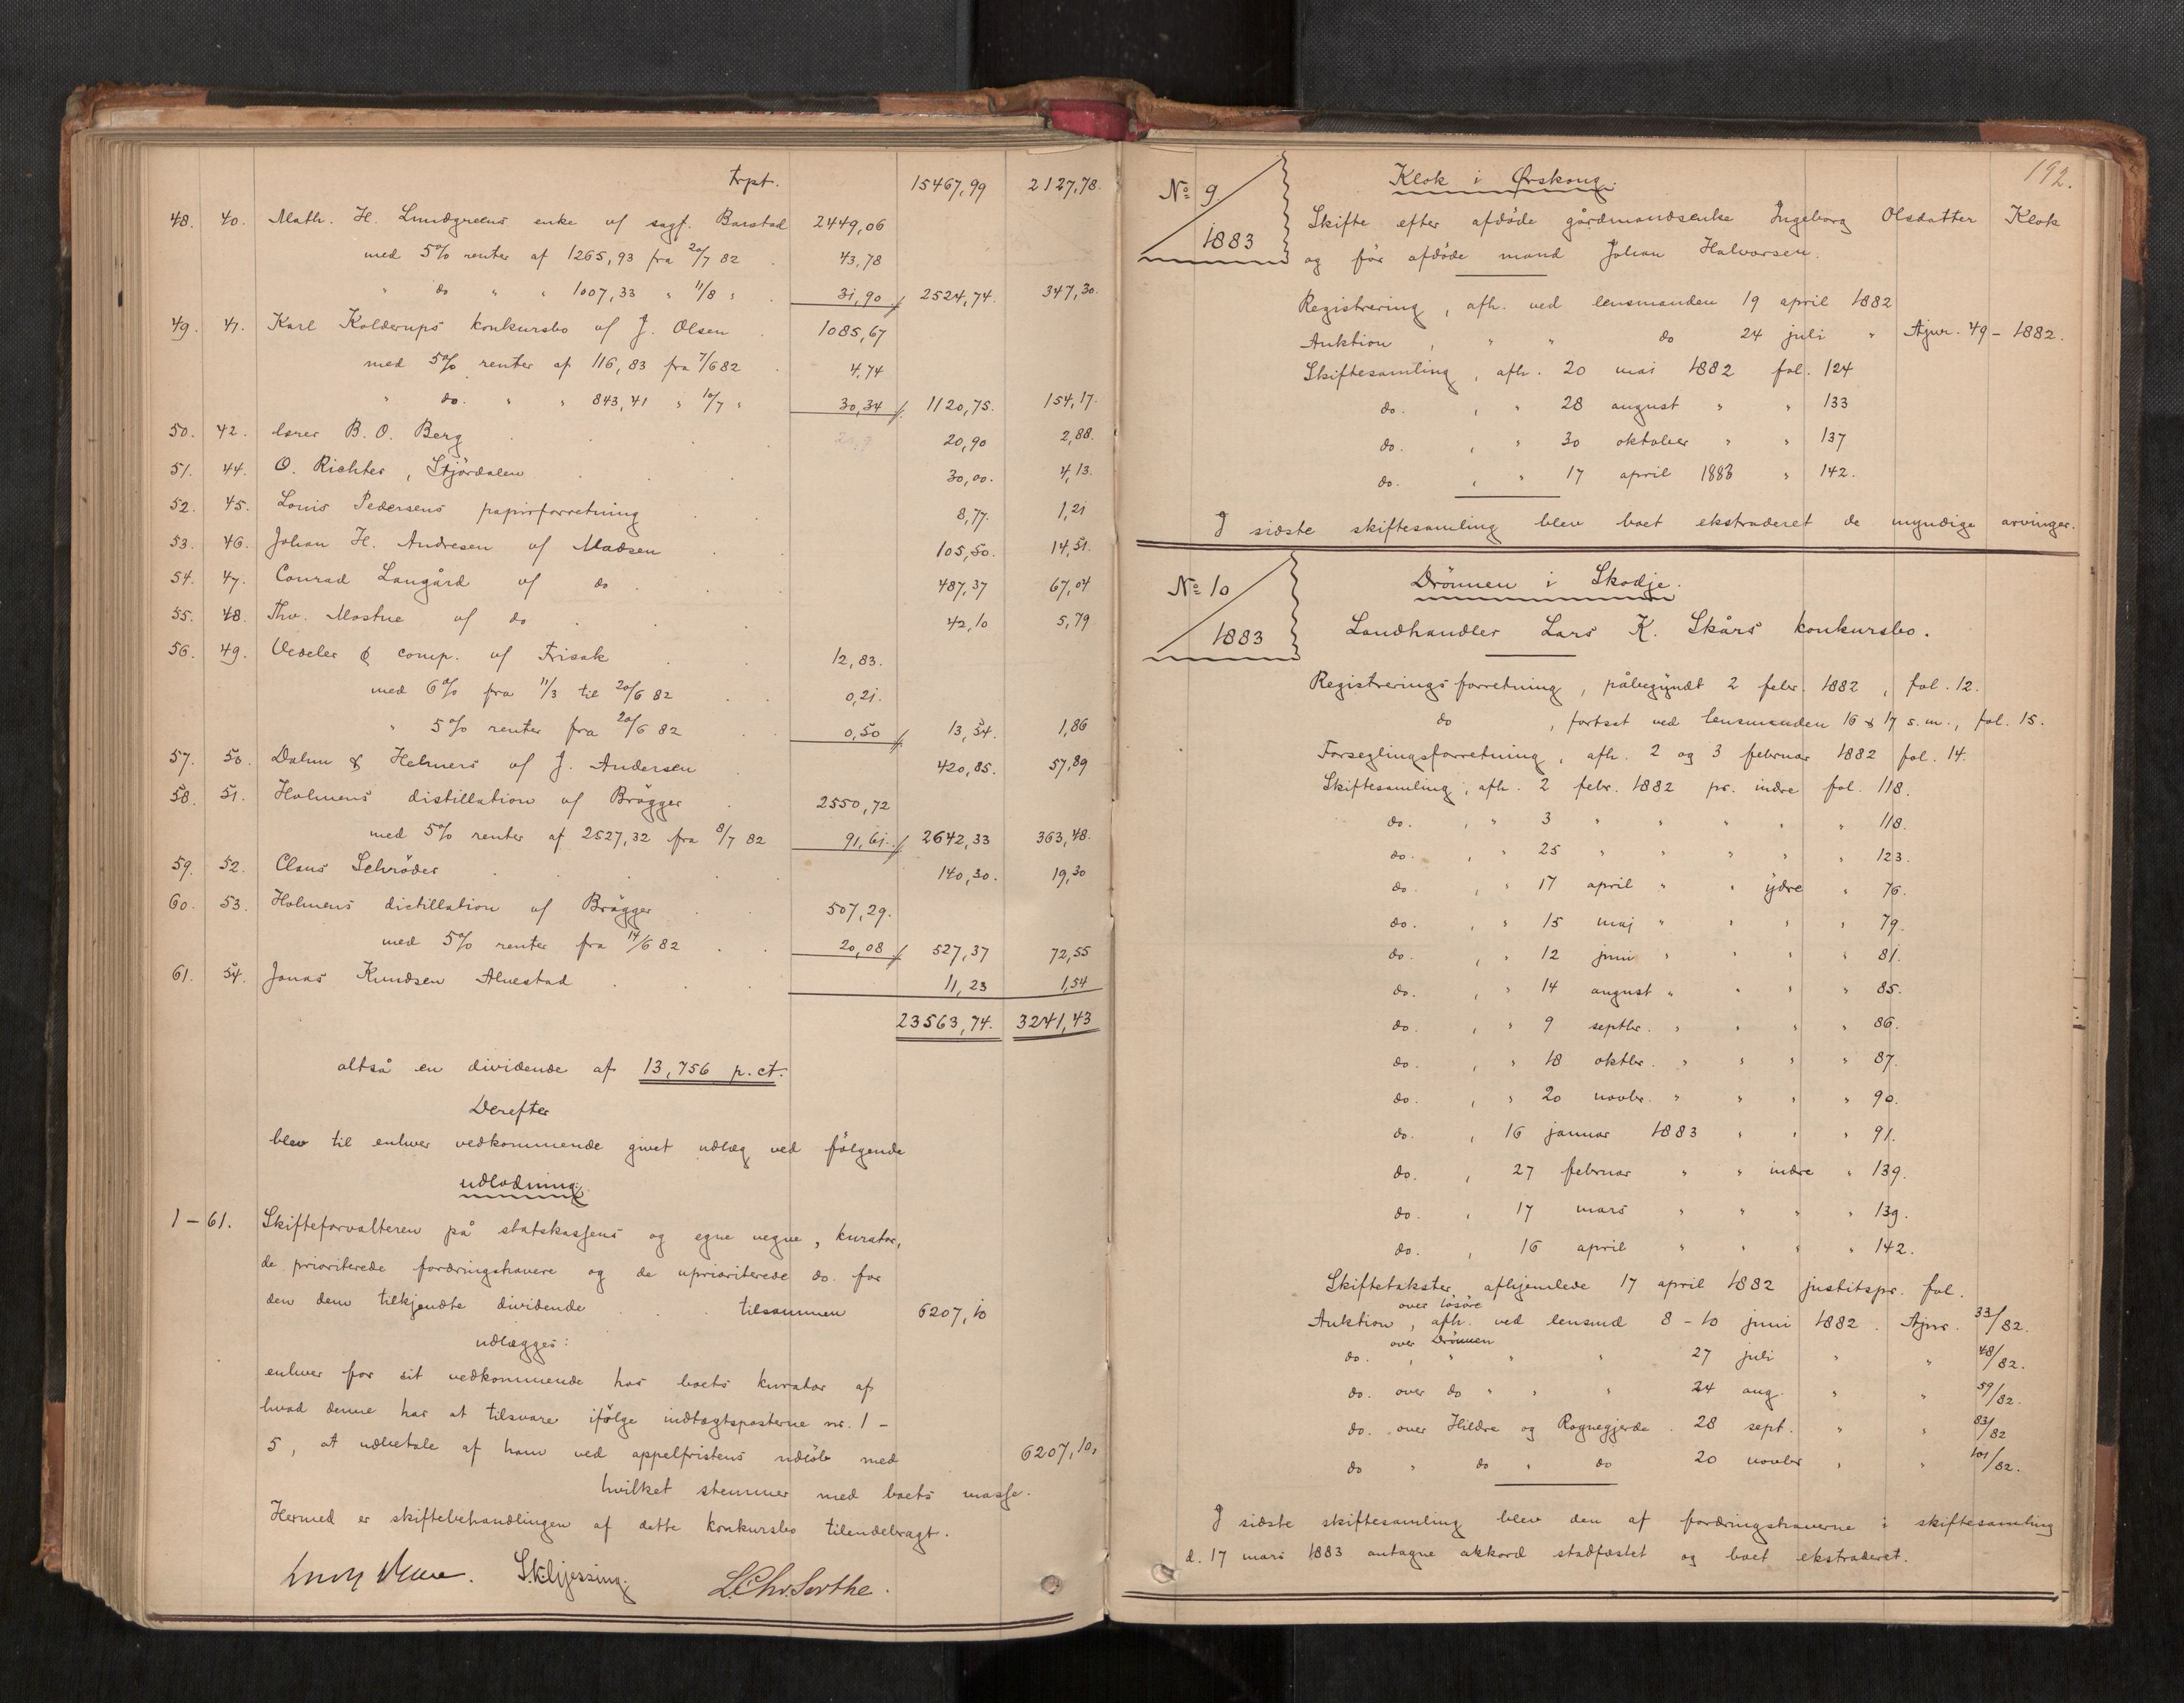 Trpt. 15467,99 2127,78.
48. 40. Math. H. Lundgreens enke v/ sagf. Barstad 2449,06
med 5% renter af 1265,93 fra 20/7 82 . 43,78
" do " " 1007,33 " 11/8 " . 31,90 /. 2524,74. 347,30.
49. 41. Karl Kolderups konkursbo v/ J. Olsen . 1085,67
med 5% renter af 116,83 fra 7/6 82 . 4,74
" do. " " 843,41 " 10/7 " 30,34 /. 1120,75. 154,17.
50. 42. B. O. Berg . . . 20,90 2,88.
51. 44. O. Richter, Stjørdalen . . . 30,00. 4,13.
52. 45. Louis Pedersens papirforretning . . 8,77. 1,21
53. 46. Johan H. Andresen v/ Madsen . . 105,50. 14,51.
54. 47. Conrad Langård v/ do . . . 487,37 67,04
55. 48. Thv. Mostue v/ do . . . 42,10 5,79
56. 49. Vedeler & comp. v/ Frisak . . 12,83.
med 6% fra 11/3 til 20/6 82 . . 0,21.
" 5% renter fra 20/6 82 . 0,50 /. 13,54. 1,86
57. 50. Dahm & Helmers v/ J. Andersen . 420,85. 57,89
58. 51. Holmens distillation v/ Brögger . 2550,72
med 5% renter af 2527,32 fra 8/7 82 91,61. /. 2642,33 363,48.
59. 52. Claus Schröder . . . . 140,30. 19,30
60. 53. Holmens distillation v/ Brögger . . 507,29.
med 5% renter fra 14/6 82 . . 20,08 /. 527,37 72,55
61. 54. Jonas Knudsen Alvestad . . . 11,23 1,54
23563,74. 3241,43
altså en dividende af 13,756 p. ct.
Derefter
blev til enhver vedkommende givet udlæg ved fölgende
udlodning:
1 – 61. Skifteforvalteren på statskassens og egne vegne, kurator,
de prioriterede fordringshavere og de uprioriterede do. for
den dem tilkjendte dividende . . . tilsammen 6207,10
udlægges:
enhver for sit vedkommende hos boets kurator af
hvad denne har at tilsvare ifölge indtægtsposterne nr. 1 –
5, at udbetale af ham ved appelfristens udlöb med 6207,10,
hvilket stemmer med boets masse.
Hermed er skiftebehandlingen af dette konkursbo tilendebragt.
L.Chr. Sorthe.
192.
No 9
1883
Klok i Ørskoug.
Skifte efter afdöde gårdmandsenke Ingeborg Olsdatter Klok
og för afdöde mand Johan Halvorsen.
Registrering, afh. ved lensmanden 19 april 1882
Auktion , " " do 24 juli " Ajour. 49 – 1882.
Skiftesamling, afh. 20 mai 1882 fol. 124
do. , " 28 august " " 133
do. , " 30 oktober " " 137
do. , " 17 april 1883 " 142.
I sidste skiftesamling blev boet ekstraderet de myndige arvinger.
No 10
1883
Drönnen i Skodje.
Landhandler Lars K. Skårs konkursbo.
Registreringsforretning, påbegyndt 2 febr. 1882, fol. 12.
do , fortsat ved lensmanden 16 & 17 s. m., fol. 15.
Forseglingsforretning, afh. 2 og 3 februar 1882 fol. 14.
Skiftesamling, afh. 2 febr. 1882 pr. indre fol. 118.
do. , " 3 " " " " " 118.
do. , " 25 " " " " " 123.
do. , " 17 april " " ydre " 76.
do. , " 15 maj " " " " 79.
do. , " 12 juni " " " " 81.
do. , " 14 august " " " " 85.
do. , " 9 septbr. " " " " 86.
do. , " 18 oktbr. " " " " 87.
do. , " 20 novbr. " " " " 90.
do. , 16 januar 1883 " " " 91.
do. , 27 februar " " indre " 139.
do. , 17 mars " " " " 139.
do. , 16 april " " " " 142.
Skiftetakster, afhjemlede 17 april 1882 justitspr. fol.
over lösöre
Auktion, afh. ved lensmd 8 – 10 juni 1882. Ajour. 33/82.
over Drönnen
do. , " " " 27 juli " " 48/82.
do. over do " " " 24 aug. " " 59/82.
do. over Hildre og Rognegjerde . 28 sept. " " 83/82
do " do " do 20 novbr " " 101/82.
I sidste skiftesamling blev den af fordringshaverne i skiftesamling
d. 17 mars 1883 antagne akkord stadfæstet og boet ekstraderet.